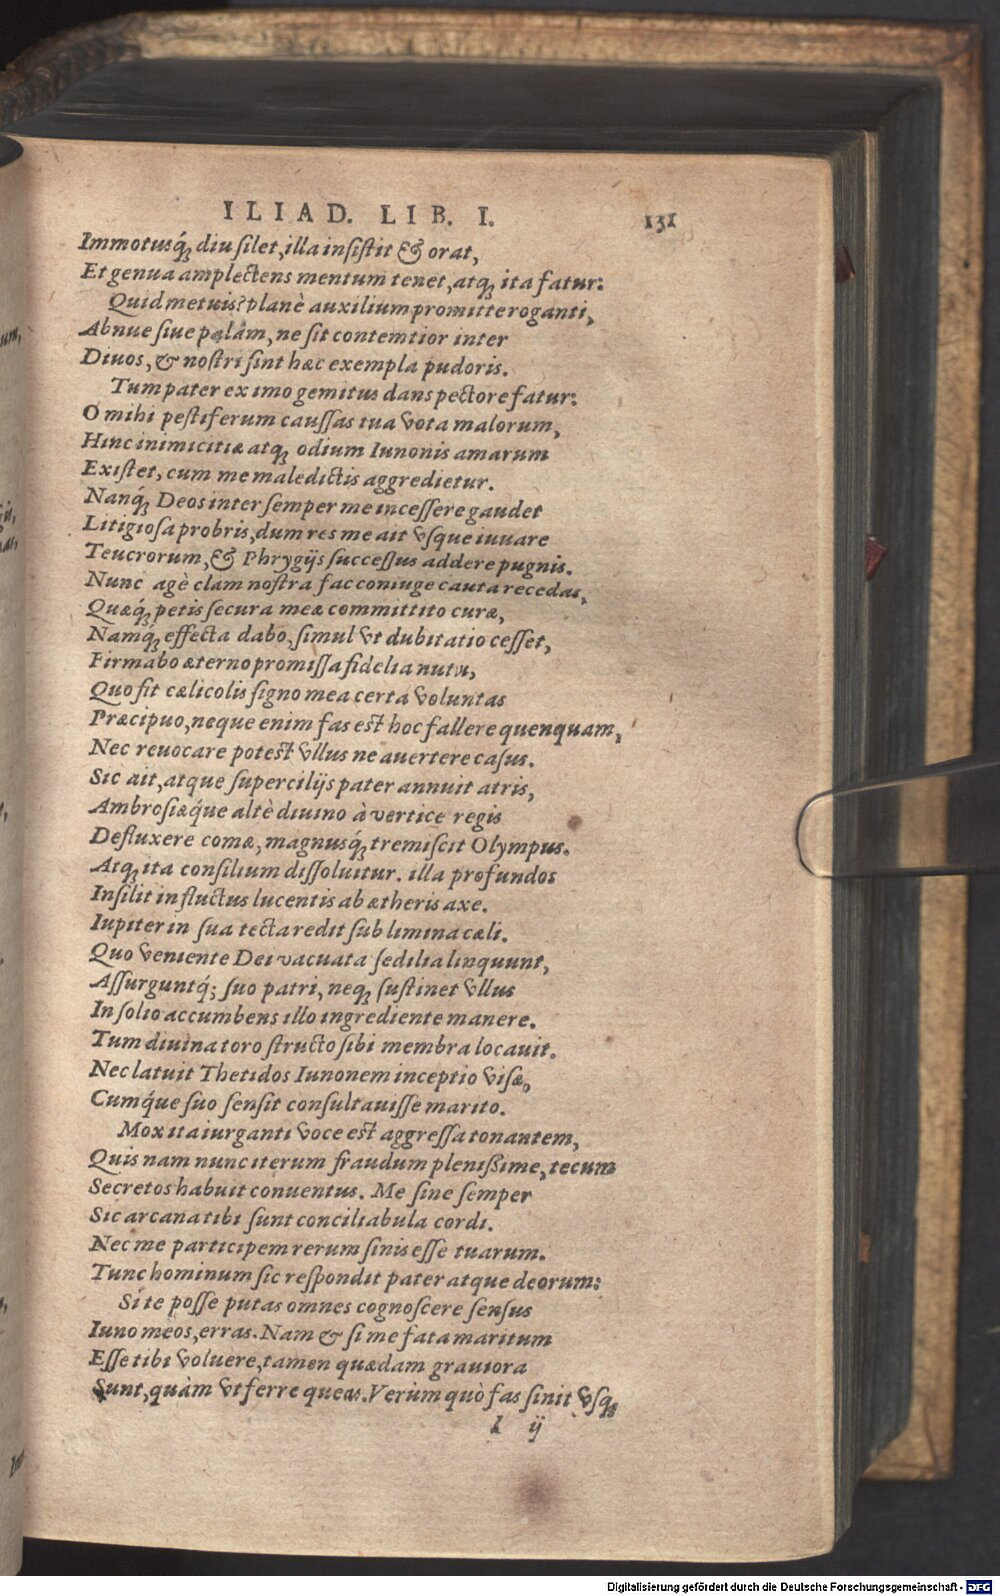 ILIAD. LIB. I. 131
Immotusq́ꝫ diu ſilet, illa inſiſtit & orat,
Et genua amplectens mentum tenet, atqꝫ ita fatur:
Quid metuis? planè auxilium promitte roganti,
Abnue ſiue palàm, ne ſit contemtior inter
Diuos, & noſtri ſint hæc exempla pudoris.
Tum pater ex imo gemitus dans pectore fatur:
O mihi peſtiferum cauſſas tua vota malorum,
Hinc inimicitiæ atqꝫ odium Iunonis amarum
Exiſtet, cum me maledictis aggredietur.
Nanq́ꝫ Deos inter ſemper me inceſſere gaudet
Litigioſa probris, dum res me ait vſque iuuare
Teucrorum, & Phrygijs ſucceſſus addere pugnis.
Nunc agè clam noſtra fac coniuge cauta recedas,
Quæq́ꝫ petis ſecura meæ committito curæ,
Namq́ꝫ effecta dabo, ſimul vt dubitatio ceſſet,
Firmabo æterno promiſſa fidelia nutu,
Quo fit cælicolis ſigno mea certa voluntas
Præcipuo, neque enim fas est hoc fallere quenquam,
Nec reuocare potest vllus ne auertere caſus.
Sic ait, atque ſupercilijs pater annuit atris,
Ambroſiæq́ue altè diuino à vertice regis
Defluxere comæ, magnusq́ꝫ tremiſcit Olympus.
Atqꝫ ita conſilium diſſoluitur. illa profundos
Inſilit in fluctus lucentis ab ætheris axe.
Iupiter in ſua tecta redit ſub limina cæli.
Quo veniente Dei vacuata ſedilia linquunt,
Aſſurguntq́; ſuo patri, neqꝫ ſuſtinet vllus
In ſolio accumbens illo ingrediente manere.
Tum diuina toro ſtructo ſibi membra locauit.
Nec latuit Thetidos Iunonem inceptio viſæ,
Cumq́ue ſuo ſenſit conſultauiſſe marito.
Mox ita iurganti voce est aggreſſa tonantem,
Quis nam nunc iterum fraudum pleniſſime, tecum
Secretos habuit conuentus. Me ſine ſemper
Sic arcana tibi ſunt conciliabula cordi.
Nec me participem rerum ſinis eſſe tuarum.
Tunc hominum ſic reſpondit pater atque deorum:
Si te poſſe putas omnes cognoſcere ſenſus
Iuno meos, erras. Nam & ſi me fata maritum
Eſſe tibi voluere, tamen quædam grauiora
Sunt, quàm vt ferre queas. Verùm quò fas ſinit vſqꝫ
I ij
Digitalisierung gefördert durch die Deutsche Forschungsgemeinschaft - DFG